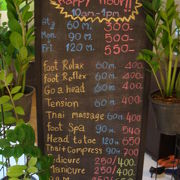 Happy Hour!!
10am-1pm
60 m. 300.-
Mon. 90 m. 500.-
Fri. 120 m. 550.-
Foot Relax 60 m. 400
Foot Reflex 60 m. 400
Go a head 60 m. 400
Tension 60 m. 400
Thai massage 60 m. 400
Foot Spa 90 m.
Head to toe 120 m. 650
Thai+Compress 90 m. 700
Pedicure 250/400.
Manicure 250/400.